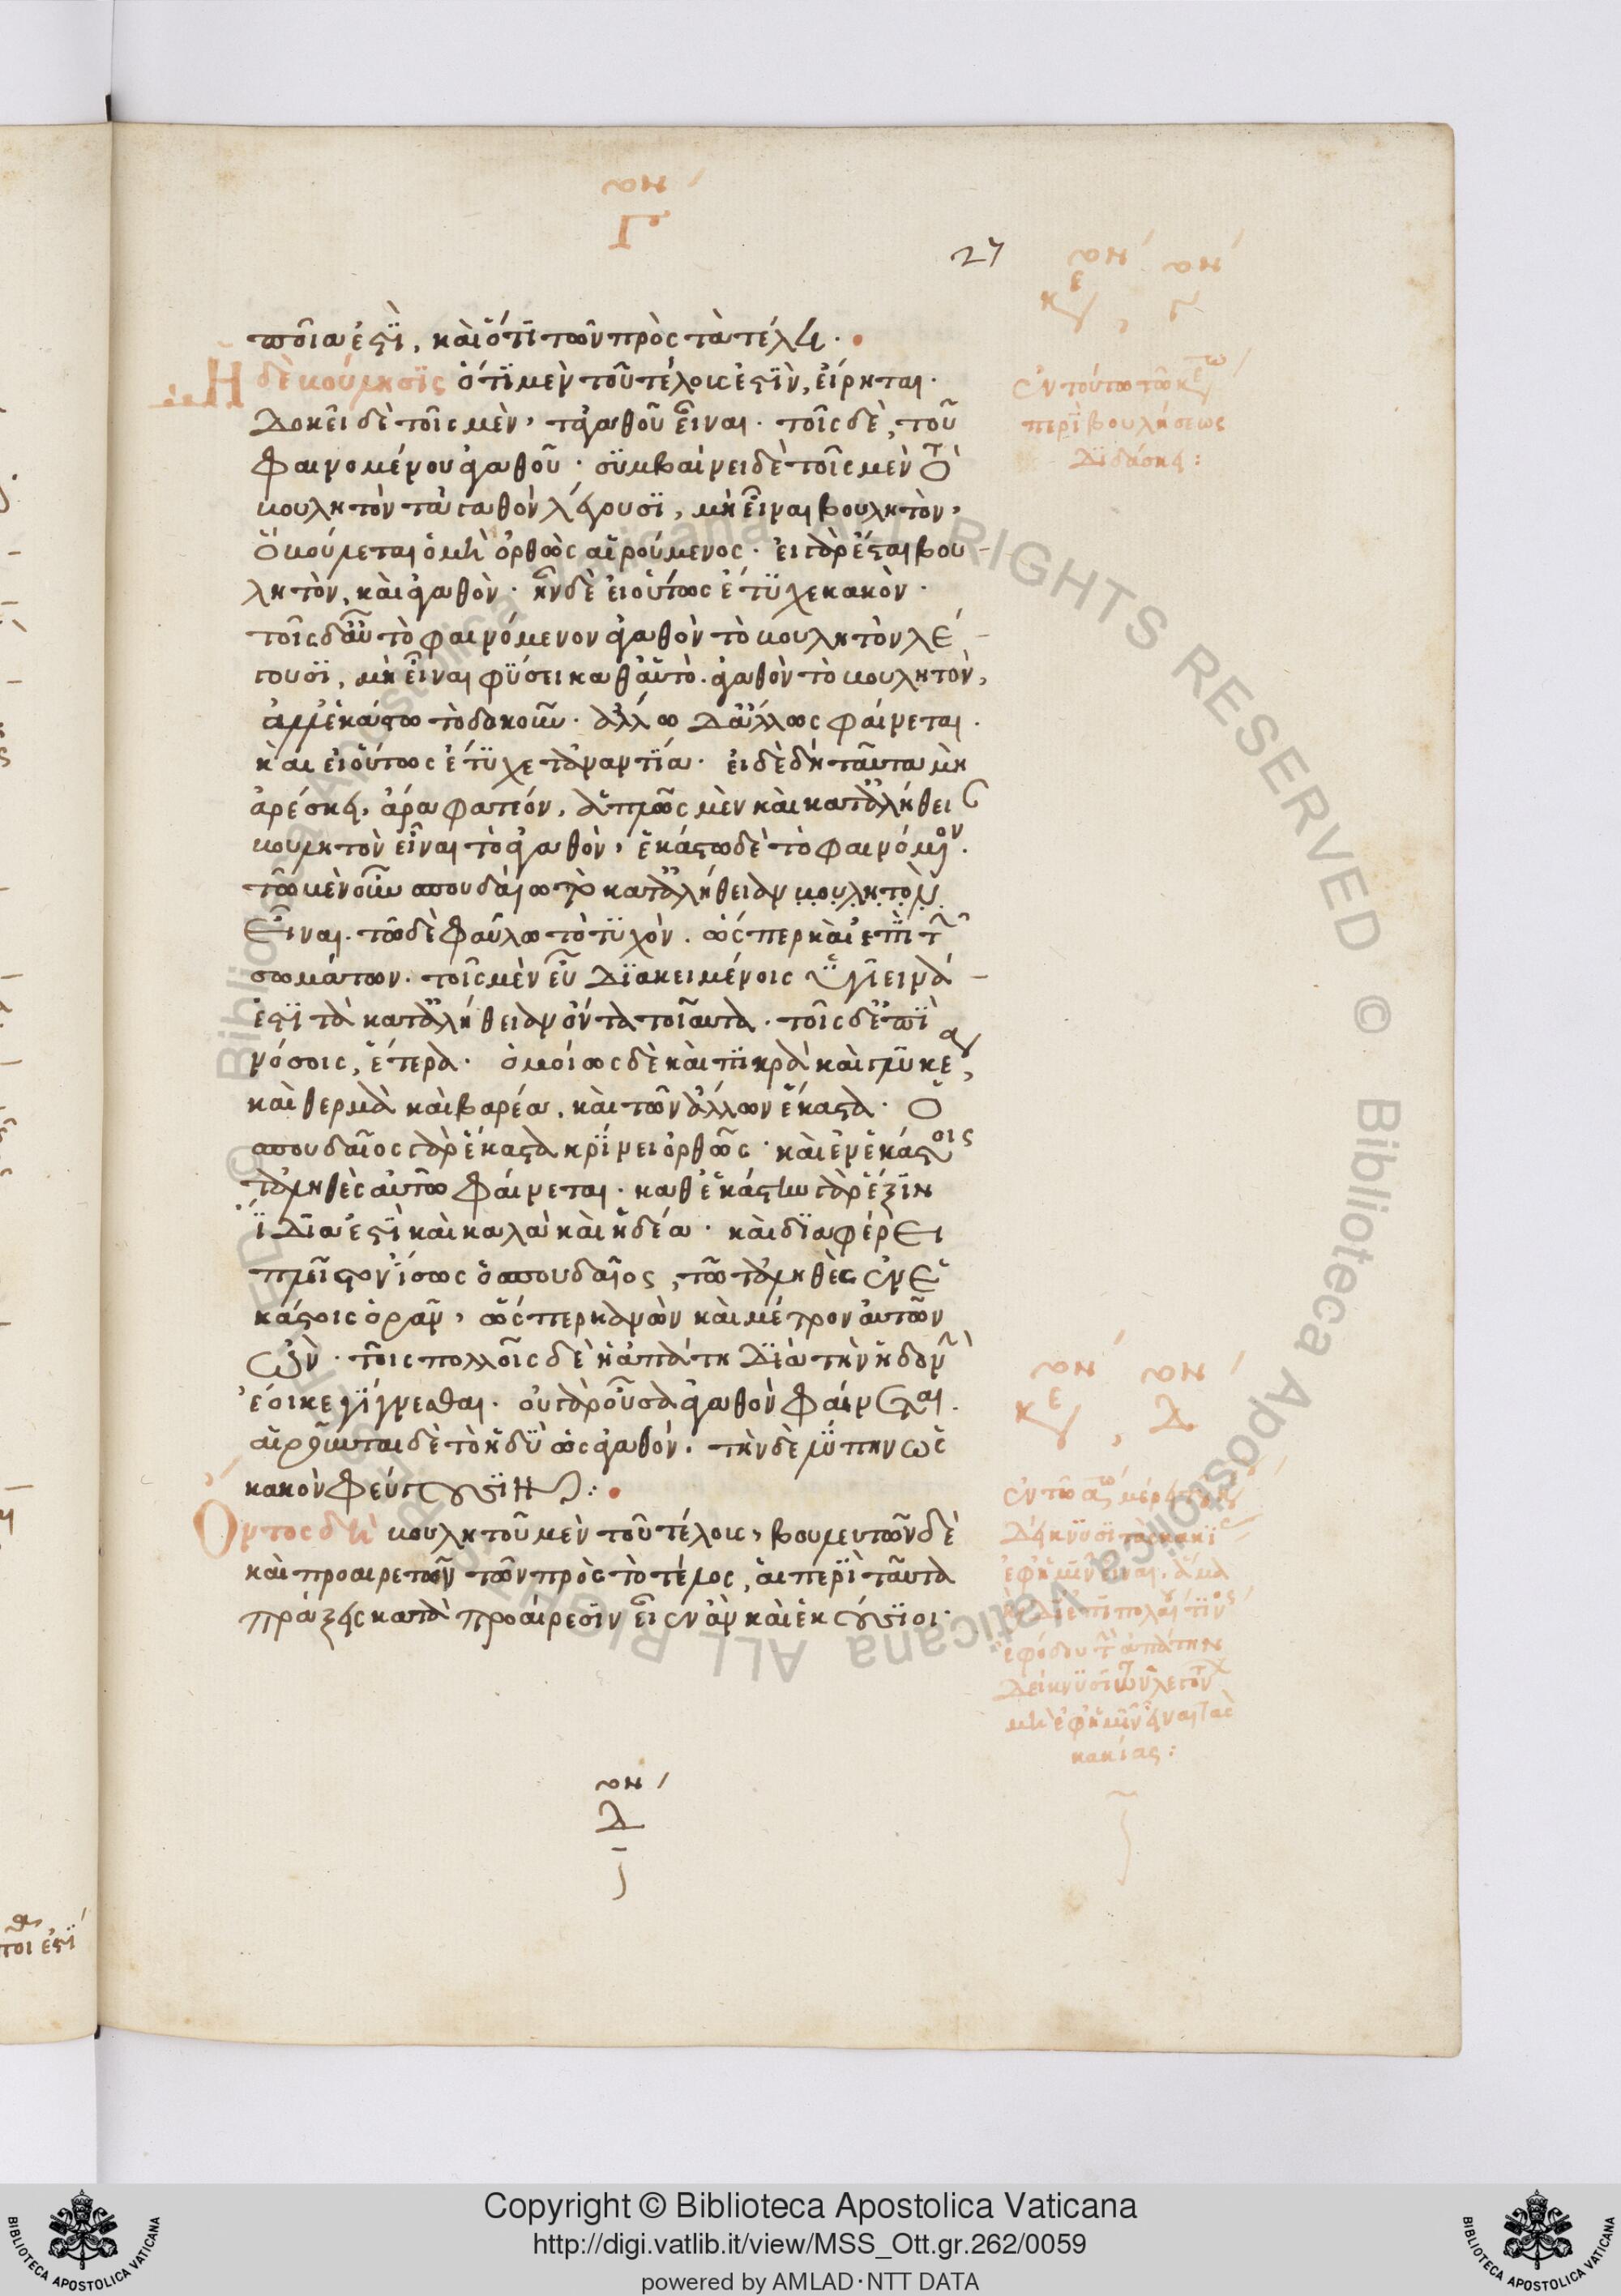 Γον
27
ποῖα ἐστὶ, καὶ ὅτι τῶν πρὸς τὰ τέλη.
Ἡ δὲ βούλησις ὅτι μὲν τοῦ τέλους ἐστὶν, εἴρηται.
δοκεῖ δὲ τοῖς μὲν, τἀγαθοῦ εἶναι. τοῖς δὲ, τοῦ
φαινομένου ἀγαθοῦ. συμβαίνει δὲ τοῖς μὲν τὸ
βουλητὸν τἀγαθὸν λέγουσι, μὴ εἶναι βουλητὸν,
ὃ βούλεται ὁ μὴ ὀρθῶς αἱρούμενος. εἰ γὰρ ἔσται βου-
λητὸν, καὶ ἀγαθὸν. ἦν δὲ εἰ οὕτως ἔτυχε κακὸν.
τοῖς δ' αὖ τὸ φαινόμενον ἀγαθὸν τὸ βουλητὸν λέ-
γουσι, μὴ εἶναι φύσει καθ' αὑτὸ ἀγαθὸν τὸ βουλητὸν,
ἀλλ' ἑκάστω τὸ δοκοῦν. ἄλλω δ' ἄλλως φαίνεται.
καὶ εἰ οὕτως ἔτυχε τἀναντία. εἰ δὲ δὴ ταῦτα μὴ
ἀρέσκει, ἄρα φατέον, ἁπλῶς μὲν καὶ κατ' ἀλήθειαν
βουλητὸν εἶναι τὸ ἀγαθὸν, ἑκάστω δὲ τὸ φαινόμενον.
τῶ μὲν οὖν σπουδαίω τὸ κατ' ἀλήθειαν βουλητὸν
εἶναι. τῶ δὲ φαύλω τὸ τυχὸν. ὥσπερ καὶ ἐπὶ τῶν
σωμάτων. τοῖς μὲν εὖ διακειμένοις ὑγιεινά
ἐστι τὰ κατ' ἀλήθειαν ὄντα τοιαῦτα. τοῖς δ' ἐπι
νόσοις, ἕτερα. ὁμοίως δὲ καὶ πικρὰ καὶ γλυκέα,
καὶ θερμὰ καὶ βαρέα, καὶ τῶν ἄλλων ἕκαστα. Ὁ
σπουδαῖος γὰρ ἕκαστα κρίνει ὀρθῶς. καὶ ἐν ἑκάστοις
τἀληθὲς αὐτῶ φαίνεται. καθ' ἑκάστην γὰρ ἕξιν
ἴδια ἐστὶ καὶ καλὰ καὶ ἡδέα. καὶ διαφέρει
πλεῖστον ἴσως ὁ σπουδαῖος, τῶ τἀληθὲς ἐν ἑ
κάστοις ὁρᾶν, ὥσπερ κανὼν καὶ μέτρον αὐτῶν
ὢν. τοῖς πολλοῖς δὲ ἡ ἀπάτη διὰ τὴν ἡδονὴν
ἔοικε γίγνεσθαι. οὐ γὰρ οὖσα ἀγαθὸν φαίνεται.
αἱροῦνται δὲ τὸ ἡδὺ ὡς ἀγαθὸν. τὴν δὲ λύπην ὡς
κακὸν φεύγουσιν:
Ὄντος δὴ βουλητοῦ μὲν τοῦ τέλους, βουλευτῶν δὲ
καὶ προαιρετῶν τῶν πρὸς τὸ τέλος, αἱ περὶ ταῦτα
πράξεις κατὰ προαίρεσιν εἶεν ἂν καὶ ἑκούσιοι.
ον
λ
ἐν τούτω τῶ κεω
περὶ βουλήσεως
διδάσκει:
δείκνυσι τὰς κακί
ἐφ' ἡμῖν εἶναι. ἅμα
ἐφόδου τὴν ἀπάτην
μὴ ἐφ' ἡμῖν εἶναι τὰς
κακίας:
Copyright © Biblioteca Apostolica Vaticana
http://digi.vatlib.it/view/MSS_Ott.gr.262/0059
powered by AMLAD·NTT DATA